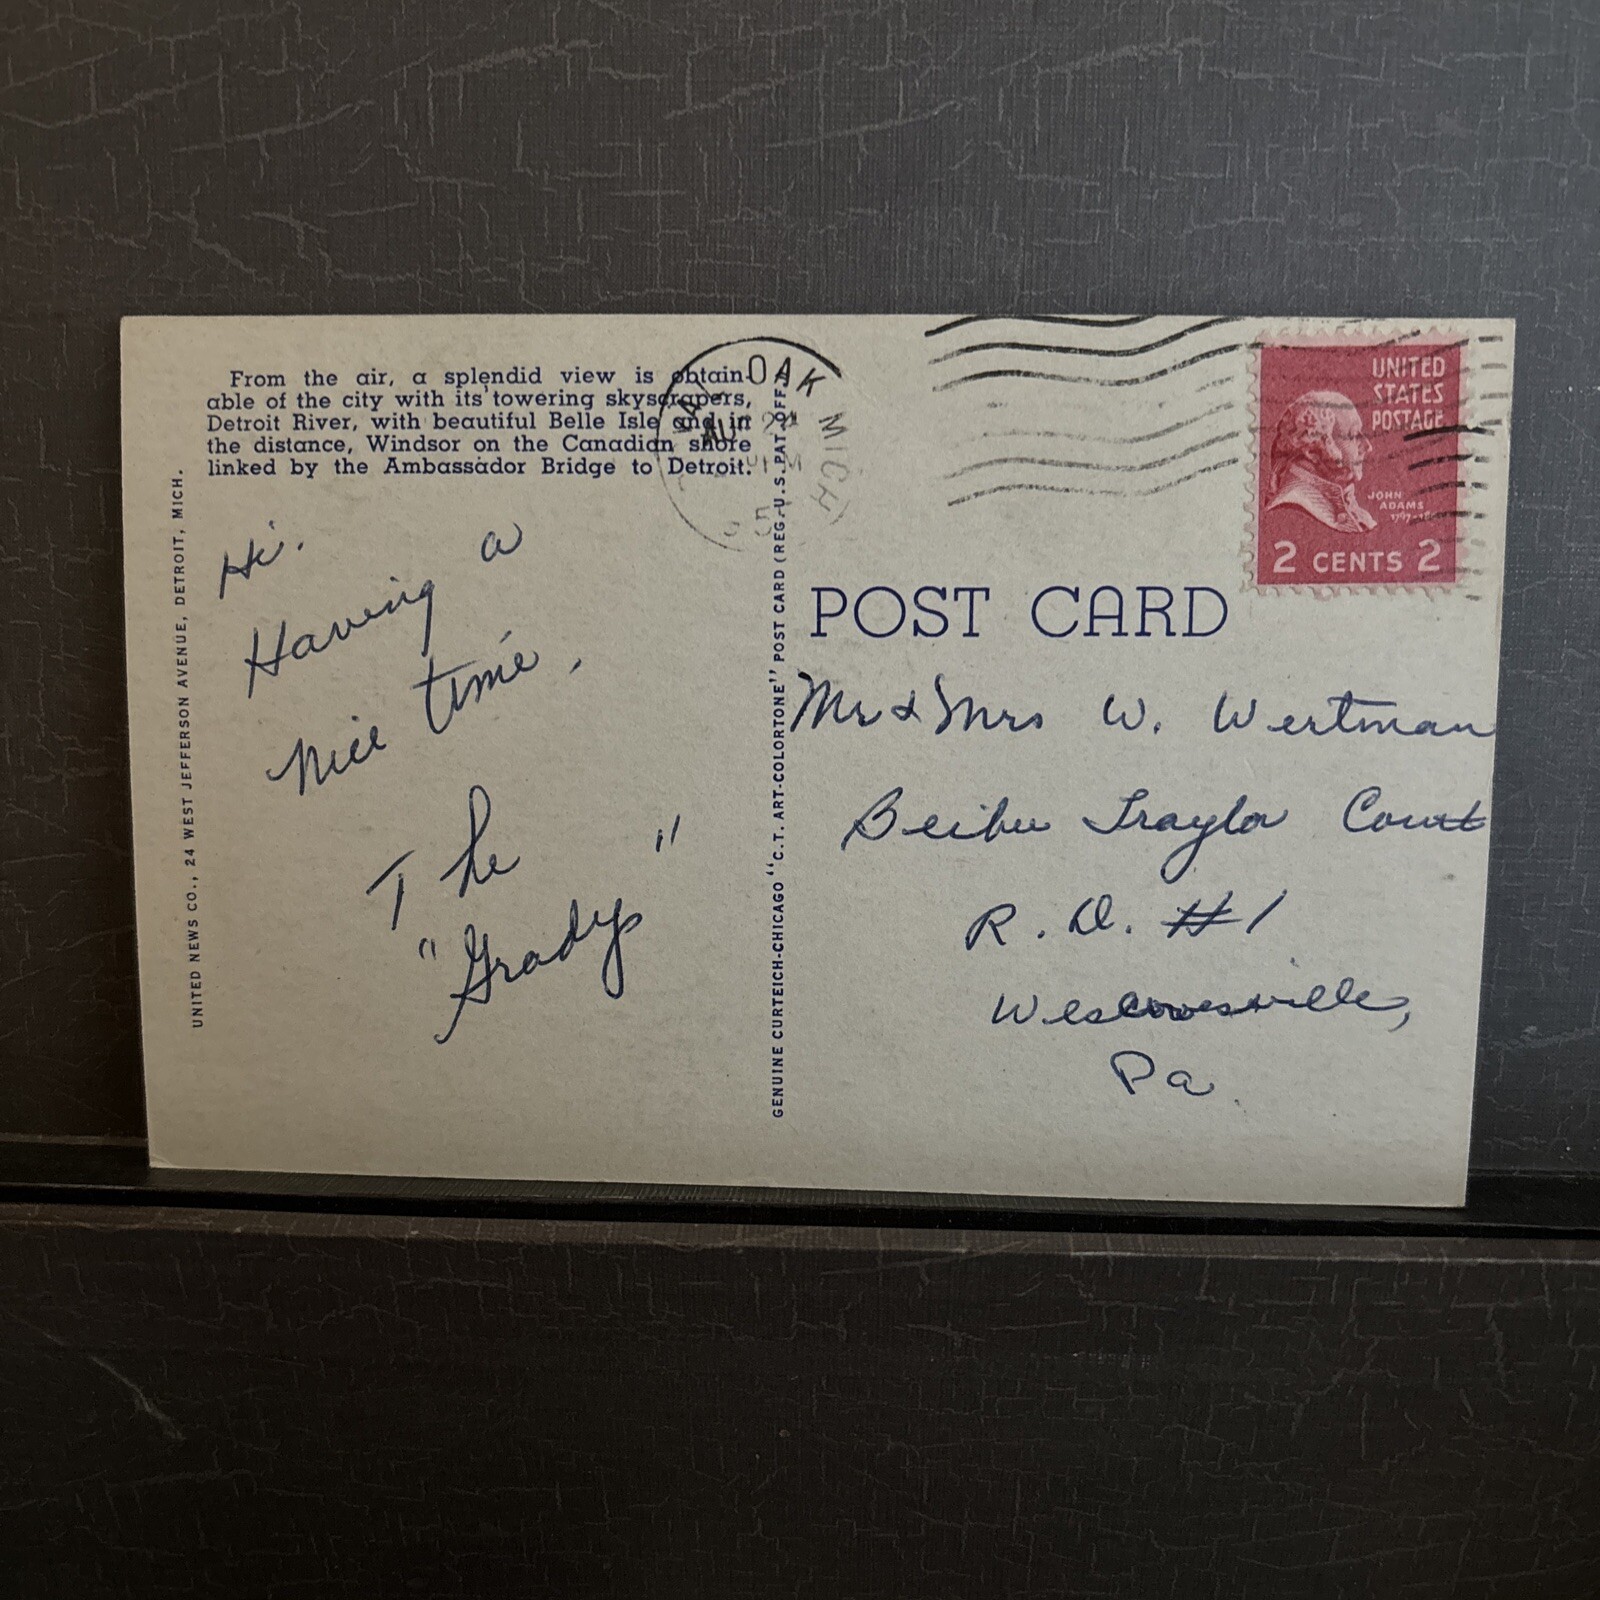 From the air, a splendid view is obtain-
able of the city with its towering skyscrapers,
Detroit River, with beautiful Belle Isle and in
the distance, Windsor on the Canadian shore
linked by the Ambassador Bridge to Detroit.
UNITED NEWS CO., 24 WEST JEFFERSON AVENUE, DETROIT, MICH.
Hi.
Having a
nice time.
The
"Gradys"
GENUINE CURTEICH-CHICAGO "C.T. ART-COLORTONE" POST CARD (REG. U.S. PAT. OFF.)
OAK MICH
UNITED
STATES
POSTAGE
JOHN
ADAMS
2 CENTS 2
POST CARD
Mr & Mrs W. Wertman
Traylor Court
R. D. #1
Wescoesville,
Pa